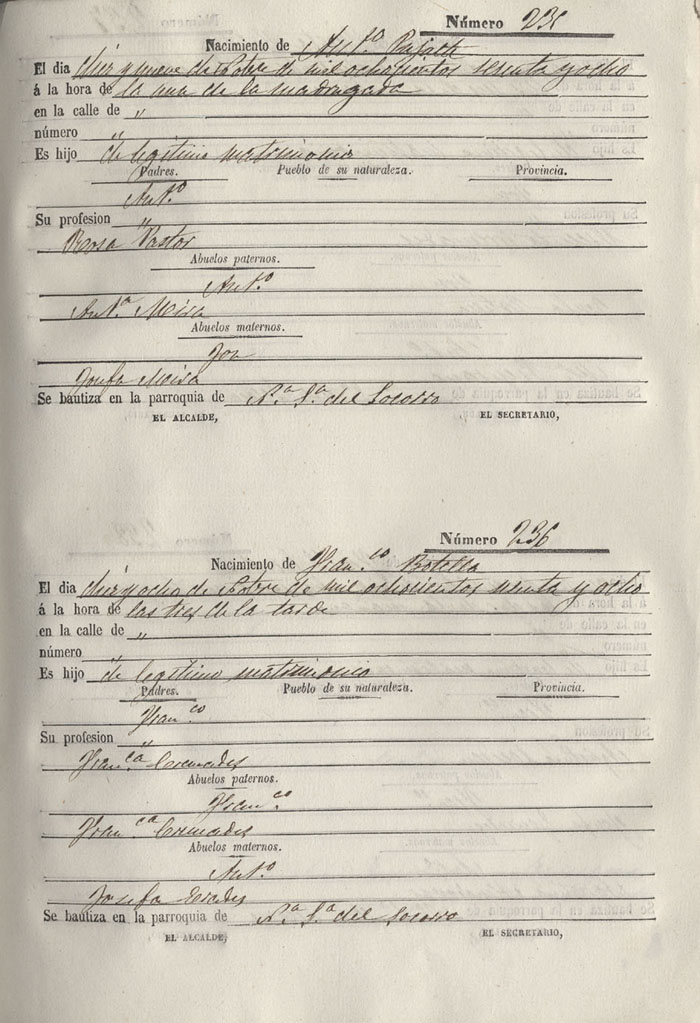 Número 235
Nacimiento de Ant.º
El día diez y nueve de 8bre de mil ochocientos sesenta y ocho
á la hora de la una de la madrugada
en la calle de "
número "
Es hijo de legitimo matrimonio
Padres. Pueblo de su naturaleza. Provincia.
Ant.º
Su profesion "
Rosa Pastor
Abuelos paternos.
Ant.º
Ant.ª Mira
Abuelos maternos.
Josefa Mira
Se bautiza en la parroquia de N.ª S.ª del Socorro
EL ALCALDE, EL SECRETARIO,
Número 236
Nacimiento de Fran.co Botella
El día diez y ocho de 8bre de mil ochocientos sesenta y ocho
á la hora de las tres de la tarde
en la calle de "
número "
Es hijo de legitimo matrimonio
Padres. Pueblo de su naturaleza. Provincia.
Fran.co
Su profesion "
Fran.ca Cremades
Abuelos paternos.
Fran.co
Fran.ca Cremades
Abuelos maternos.
Ant.º
Josefa
Se bautiza en la parroquia de N.ª S.ª del Socorro
EL ALCALDE, EL SECRETARIO,